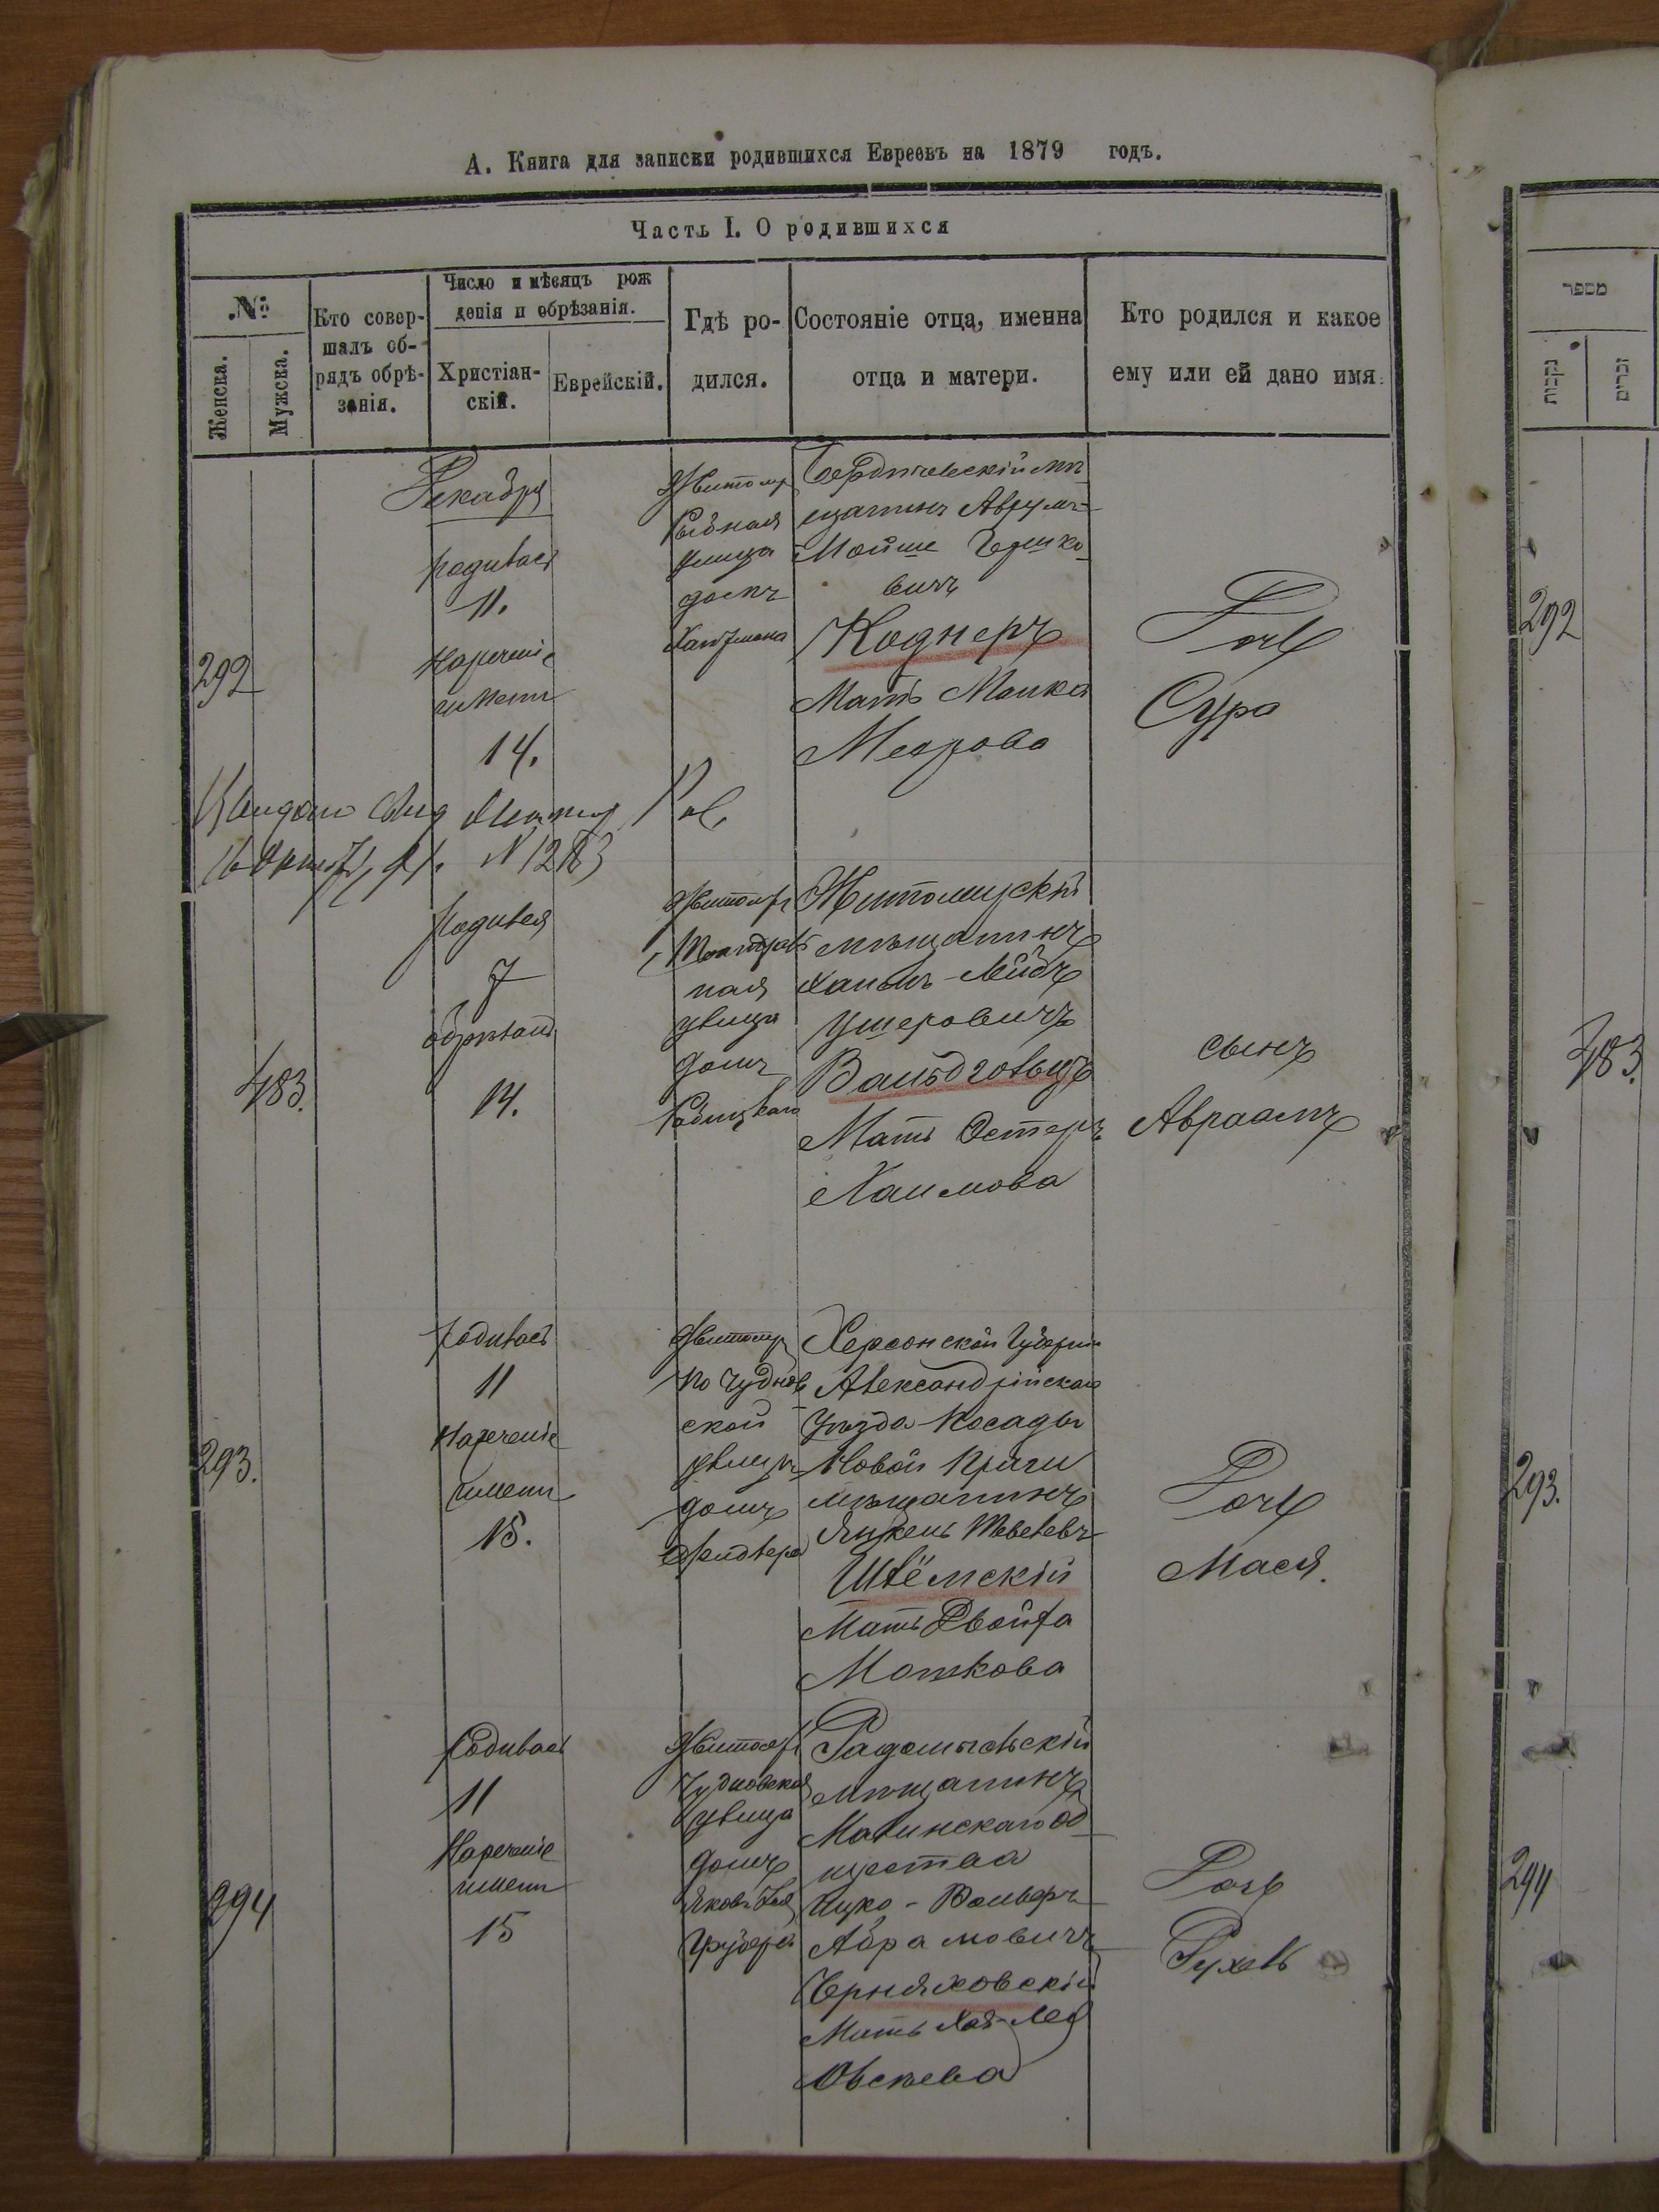 А. Книга для записки родившихся Евреевъ на 1879 годъ.
Часть I. О родившихся
№
Женска.
Мужска.
Кто совер-
шалъ об-
рядъ обрѣ-
занія.
Число и мѣсяцъ рож
денія и обрѣзанія.
Христіан-
скій.
Еврейскій.
Гдѣ ро-
дился.
Состояніе отца, именна
отца и матери.
Кто родился и какое
ему или ей дано имя.
292
Декабря
родилась
11.
Нареченіе
имени
14.
Житомир
Рыбная
улица
домъ
Бердичевскій мѣ
щанинъ Аврумъ-
Мойше Гершко
вичъ
Коднеръ
Мать Малка
Меерова
Дочь
Сура
16 Октяб, 91. N 1283
483.
родился
7
обрѣзанъ
14.
Житомир
ная
улица
домъ
Житомирскій
мѣщанинъ
Хаимъ-Лейбъ
Ушеровичъ
Вальдгольцъ
Мать Эстеръ
Хаимова
сынъ
Авраамъ
293.
родилась
11
Нареченіе
имени
15.
Житомир
по Чуднов
ской
улицѣ
домъ
Херсонской Губерніи
Александрійскаго
уѣзда посады
Новой Праги
мѣщанинъ
Янкель Шевелевъ
Шлёмскій
Мать Двойра
Мошкова
Дочь
Мася.
294
родилась
11
Нареченіе
имени
15
Житомир
Чудновская
улица
домъ
Грубера
Радомысльскій
мѣщанинъ
Малинскаго об
щества
Ицко-Вольфъ
Абрамовичъ
Черняховскій
Мать Хая-Лея
Овсѣева
Дочь
Рухель
מספר
נקבות
זכרים
292
483.
293.
294